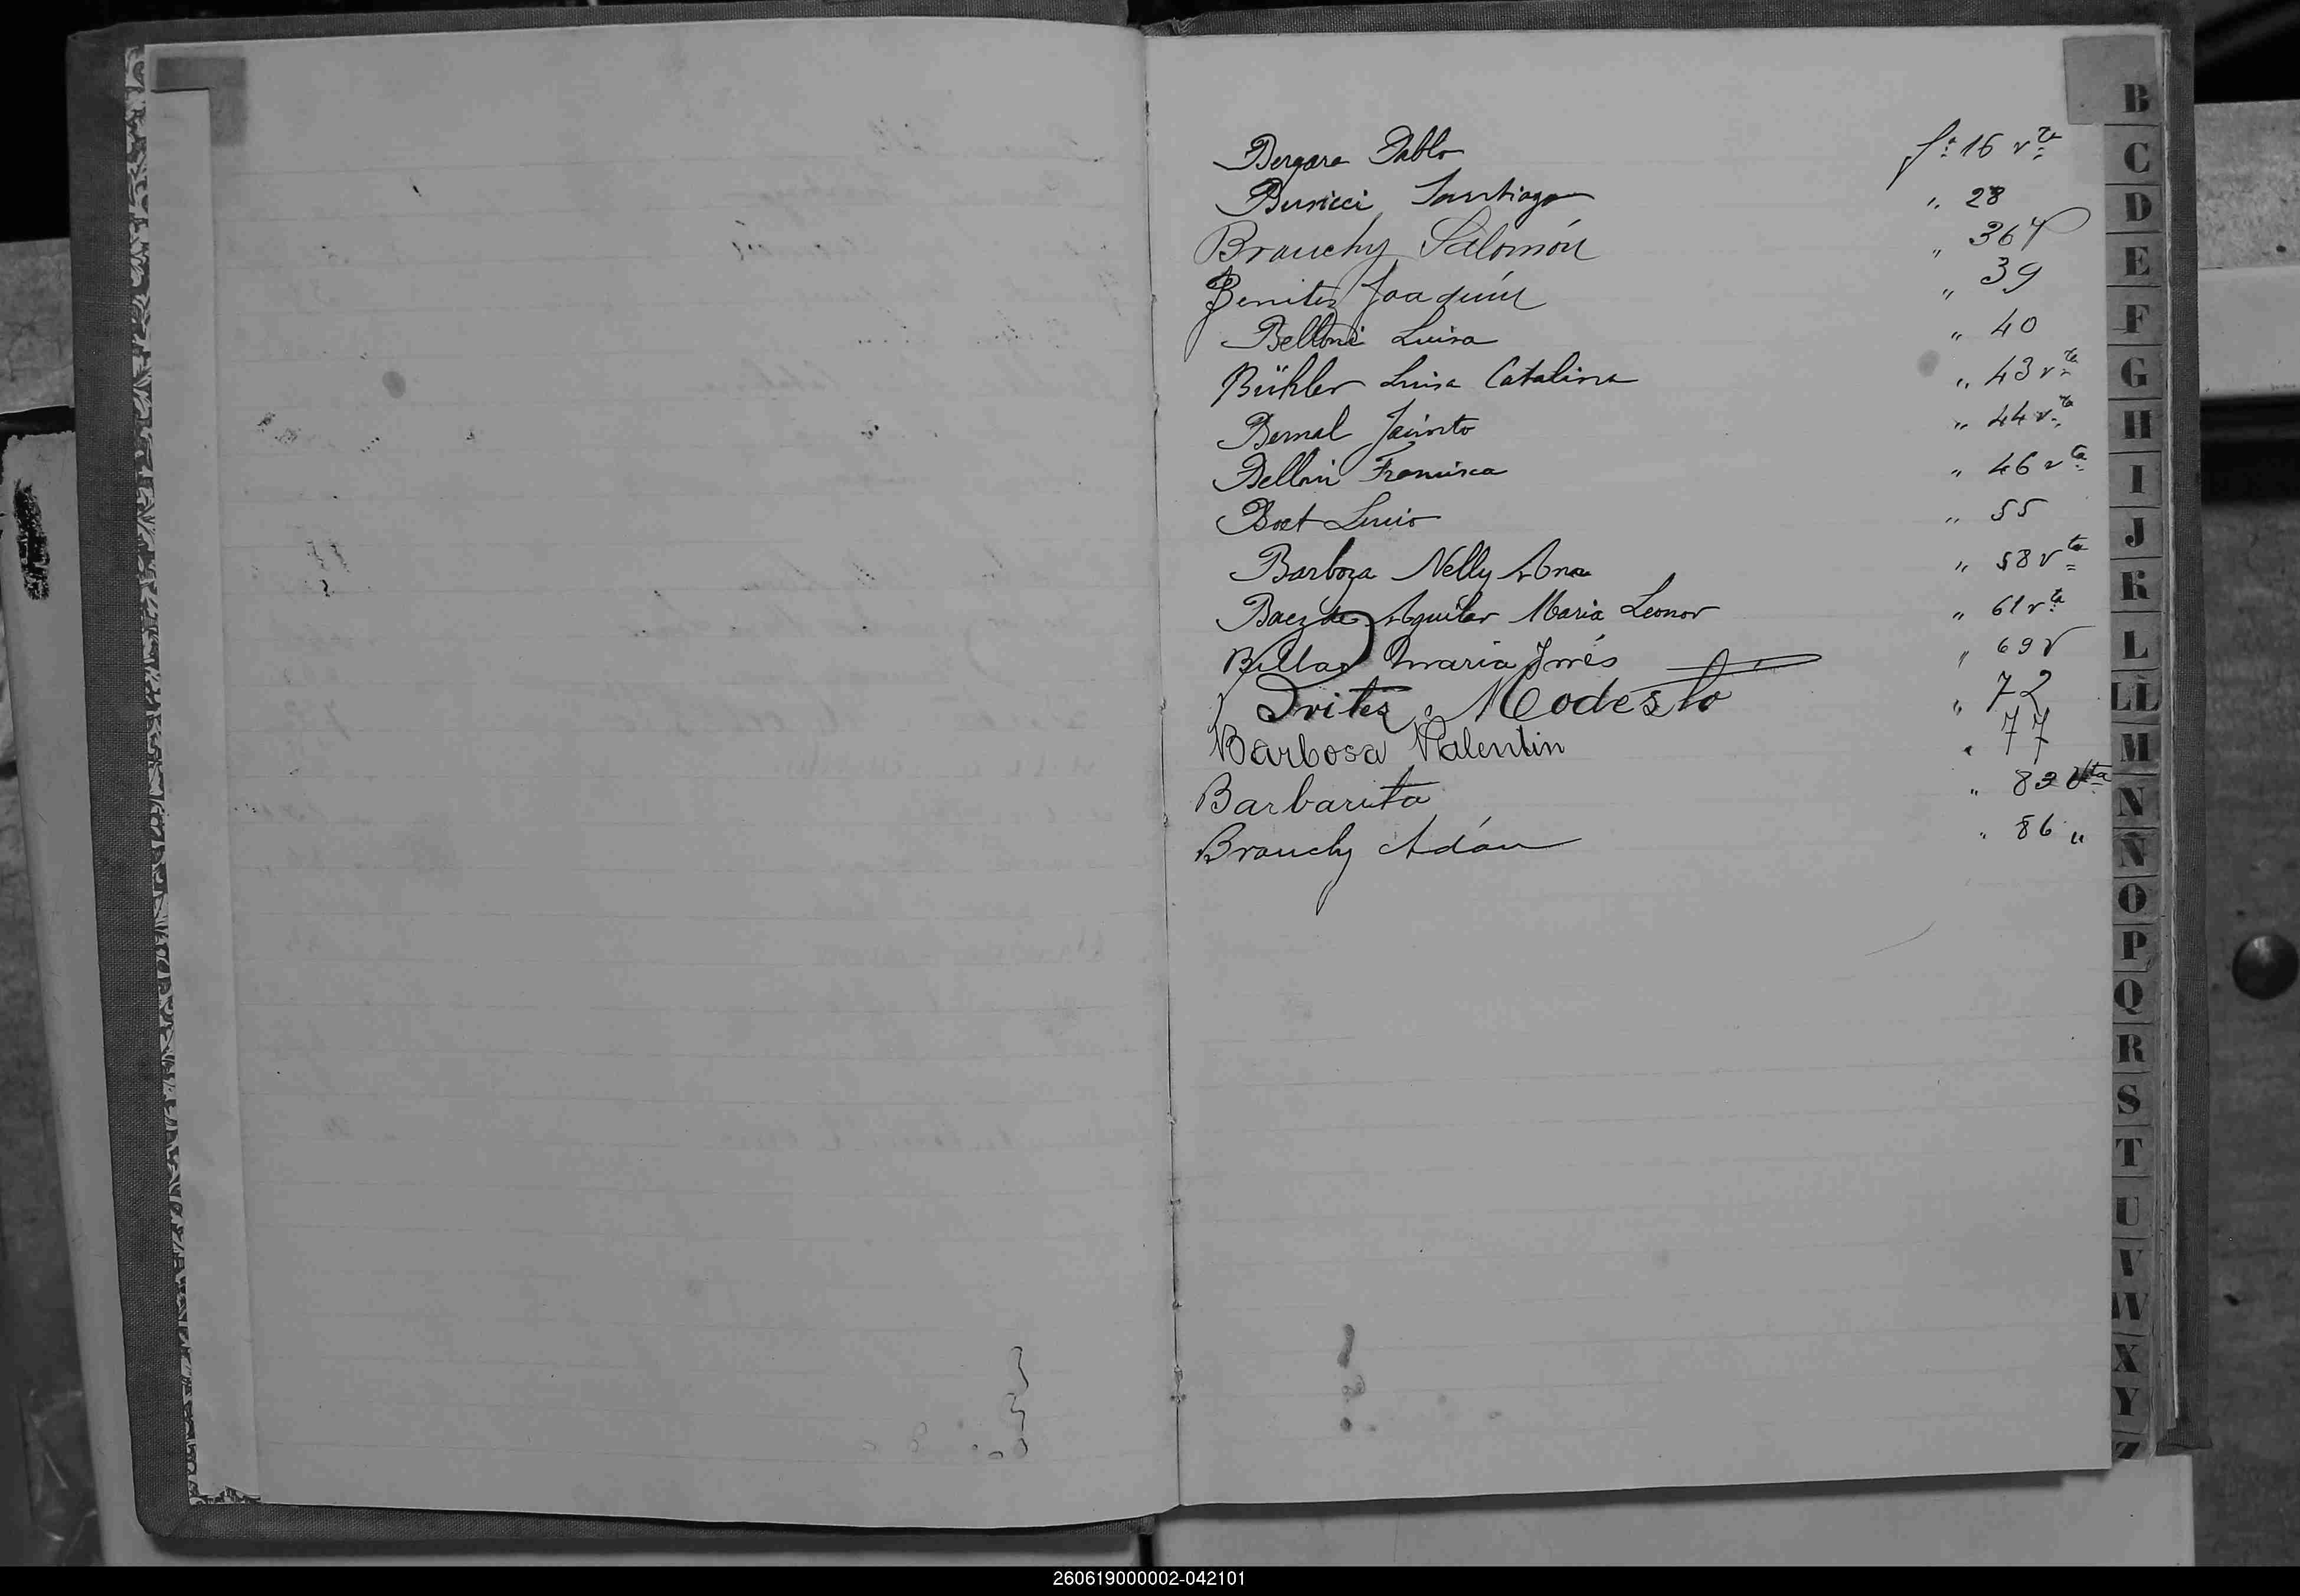 Bergara Pablo fº 16 vta
Buricci Santiago " 28
Brauchy Salomón " 36 v
Benitez Joaquín " 39
Belloni Luisa " 40
Bühler Luisa Catalina " 43 vta
Bernal Jacinto " 44 vta
Belloni Francisca " 46 vta
Boet Lucio " 55
Barboza Nelly Ana " 58 vta
Baez de Aguilar Maria Leonor " 61 vta
Billar maria Inés " 69 v
Modesto " 72
Barbosa Valentin " 77
Barbarita " 82 vta
Brauchy Adán " 86 "
B
C
D
E
F
G
H
I
J
K
L
LL
M
N
Ñ
O
P
Q
R
S
T
U
V
W
X
Y
Z
260619000002-042101